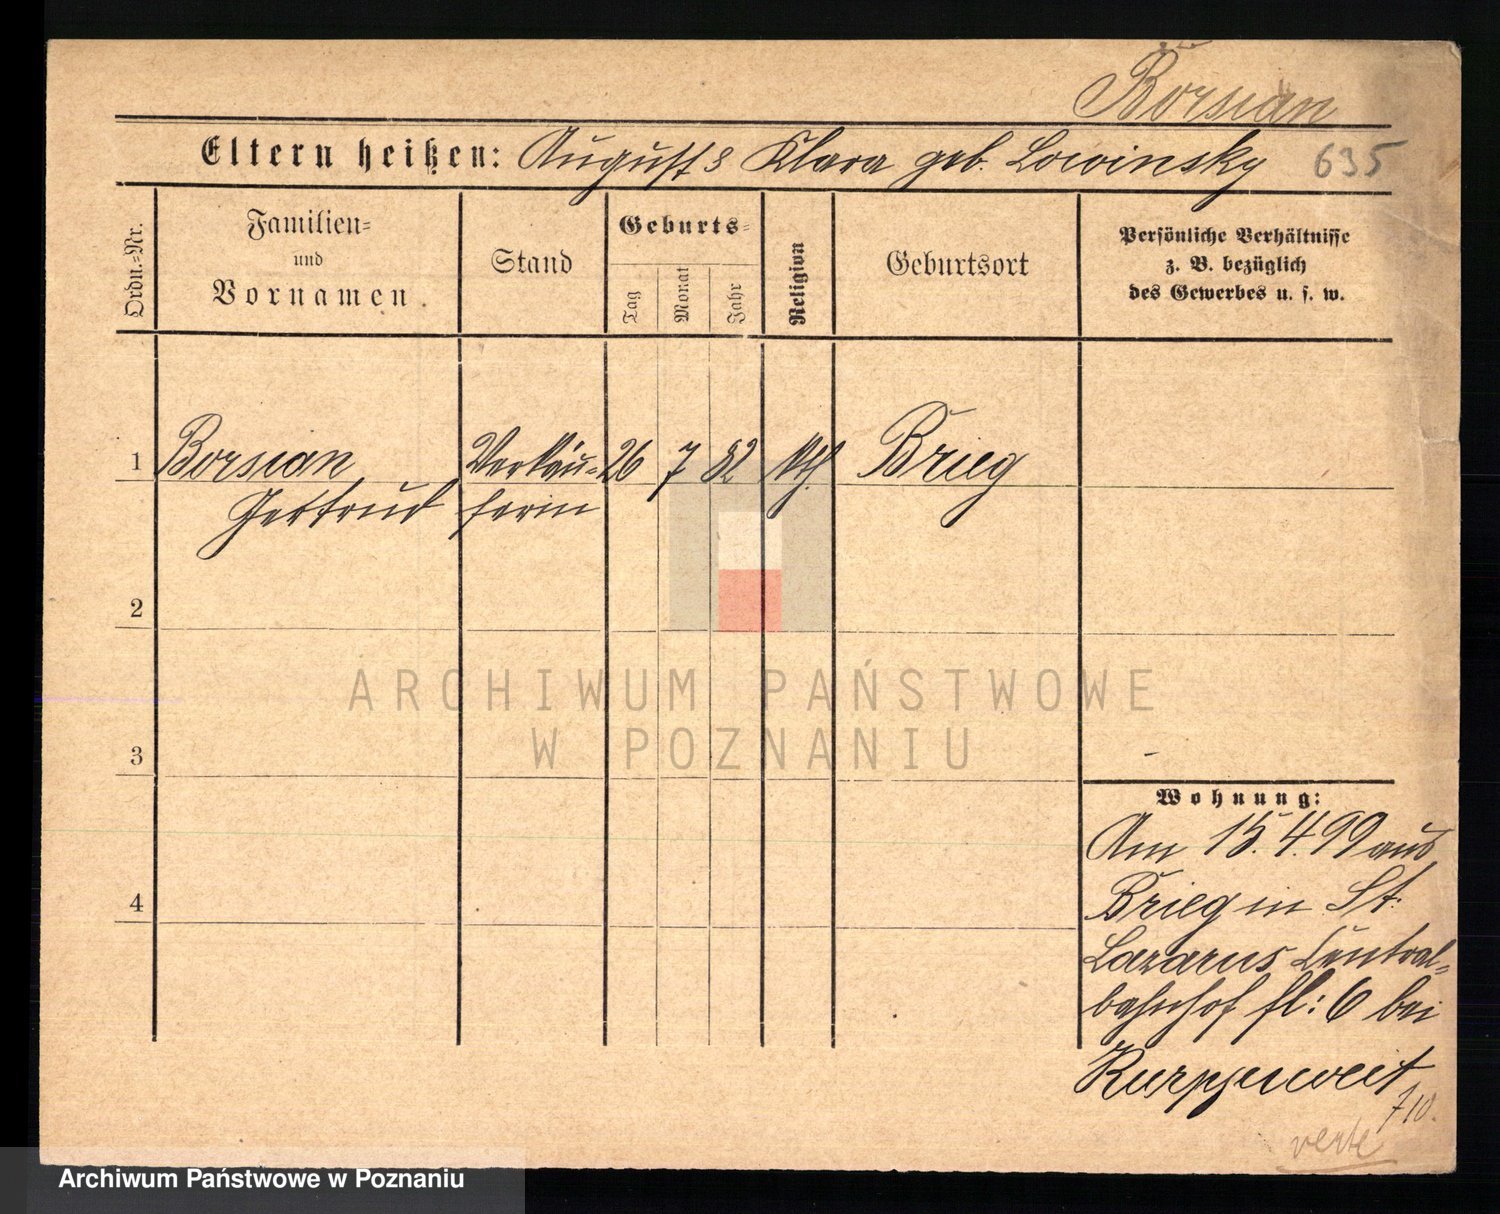 Borsian
Eltern heißen: August & Klara geb. Lowinsky 635
Ordn.-Nr.
Familien-
und
Vornamen.
Stand
Geburts-
Tag
Monat
Jahr
Religion
Geburtsort
Persönliche Verhältnisse
z. B. bezüglich
des Gewerbes u. s. w.
1 Borsian Verkäu- 26 7 82 kth. Brieg
Gertrud ferin
2
3
4
Wohnung:
Am 15.4.99 aus
Brieg in St.
Lazarus Central-
bahnhof fl: 6 bei
710.
verte
ARCHIWUM PAŃSTWOWE
W POZNANIU
Archiwum Państwowe w Poznaniu